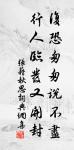 復恐匆匆說不盡
行人臨發又開封
張籍秋思詞典網